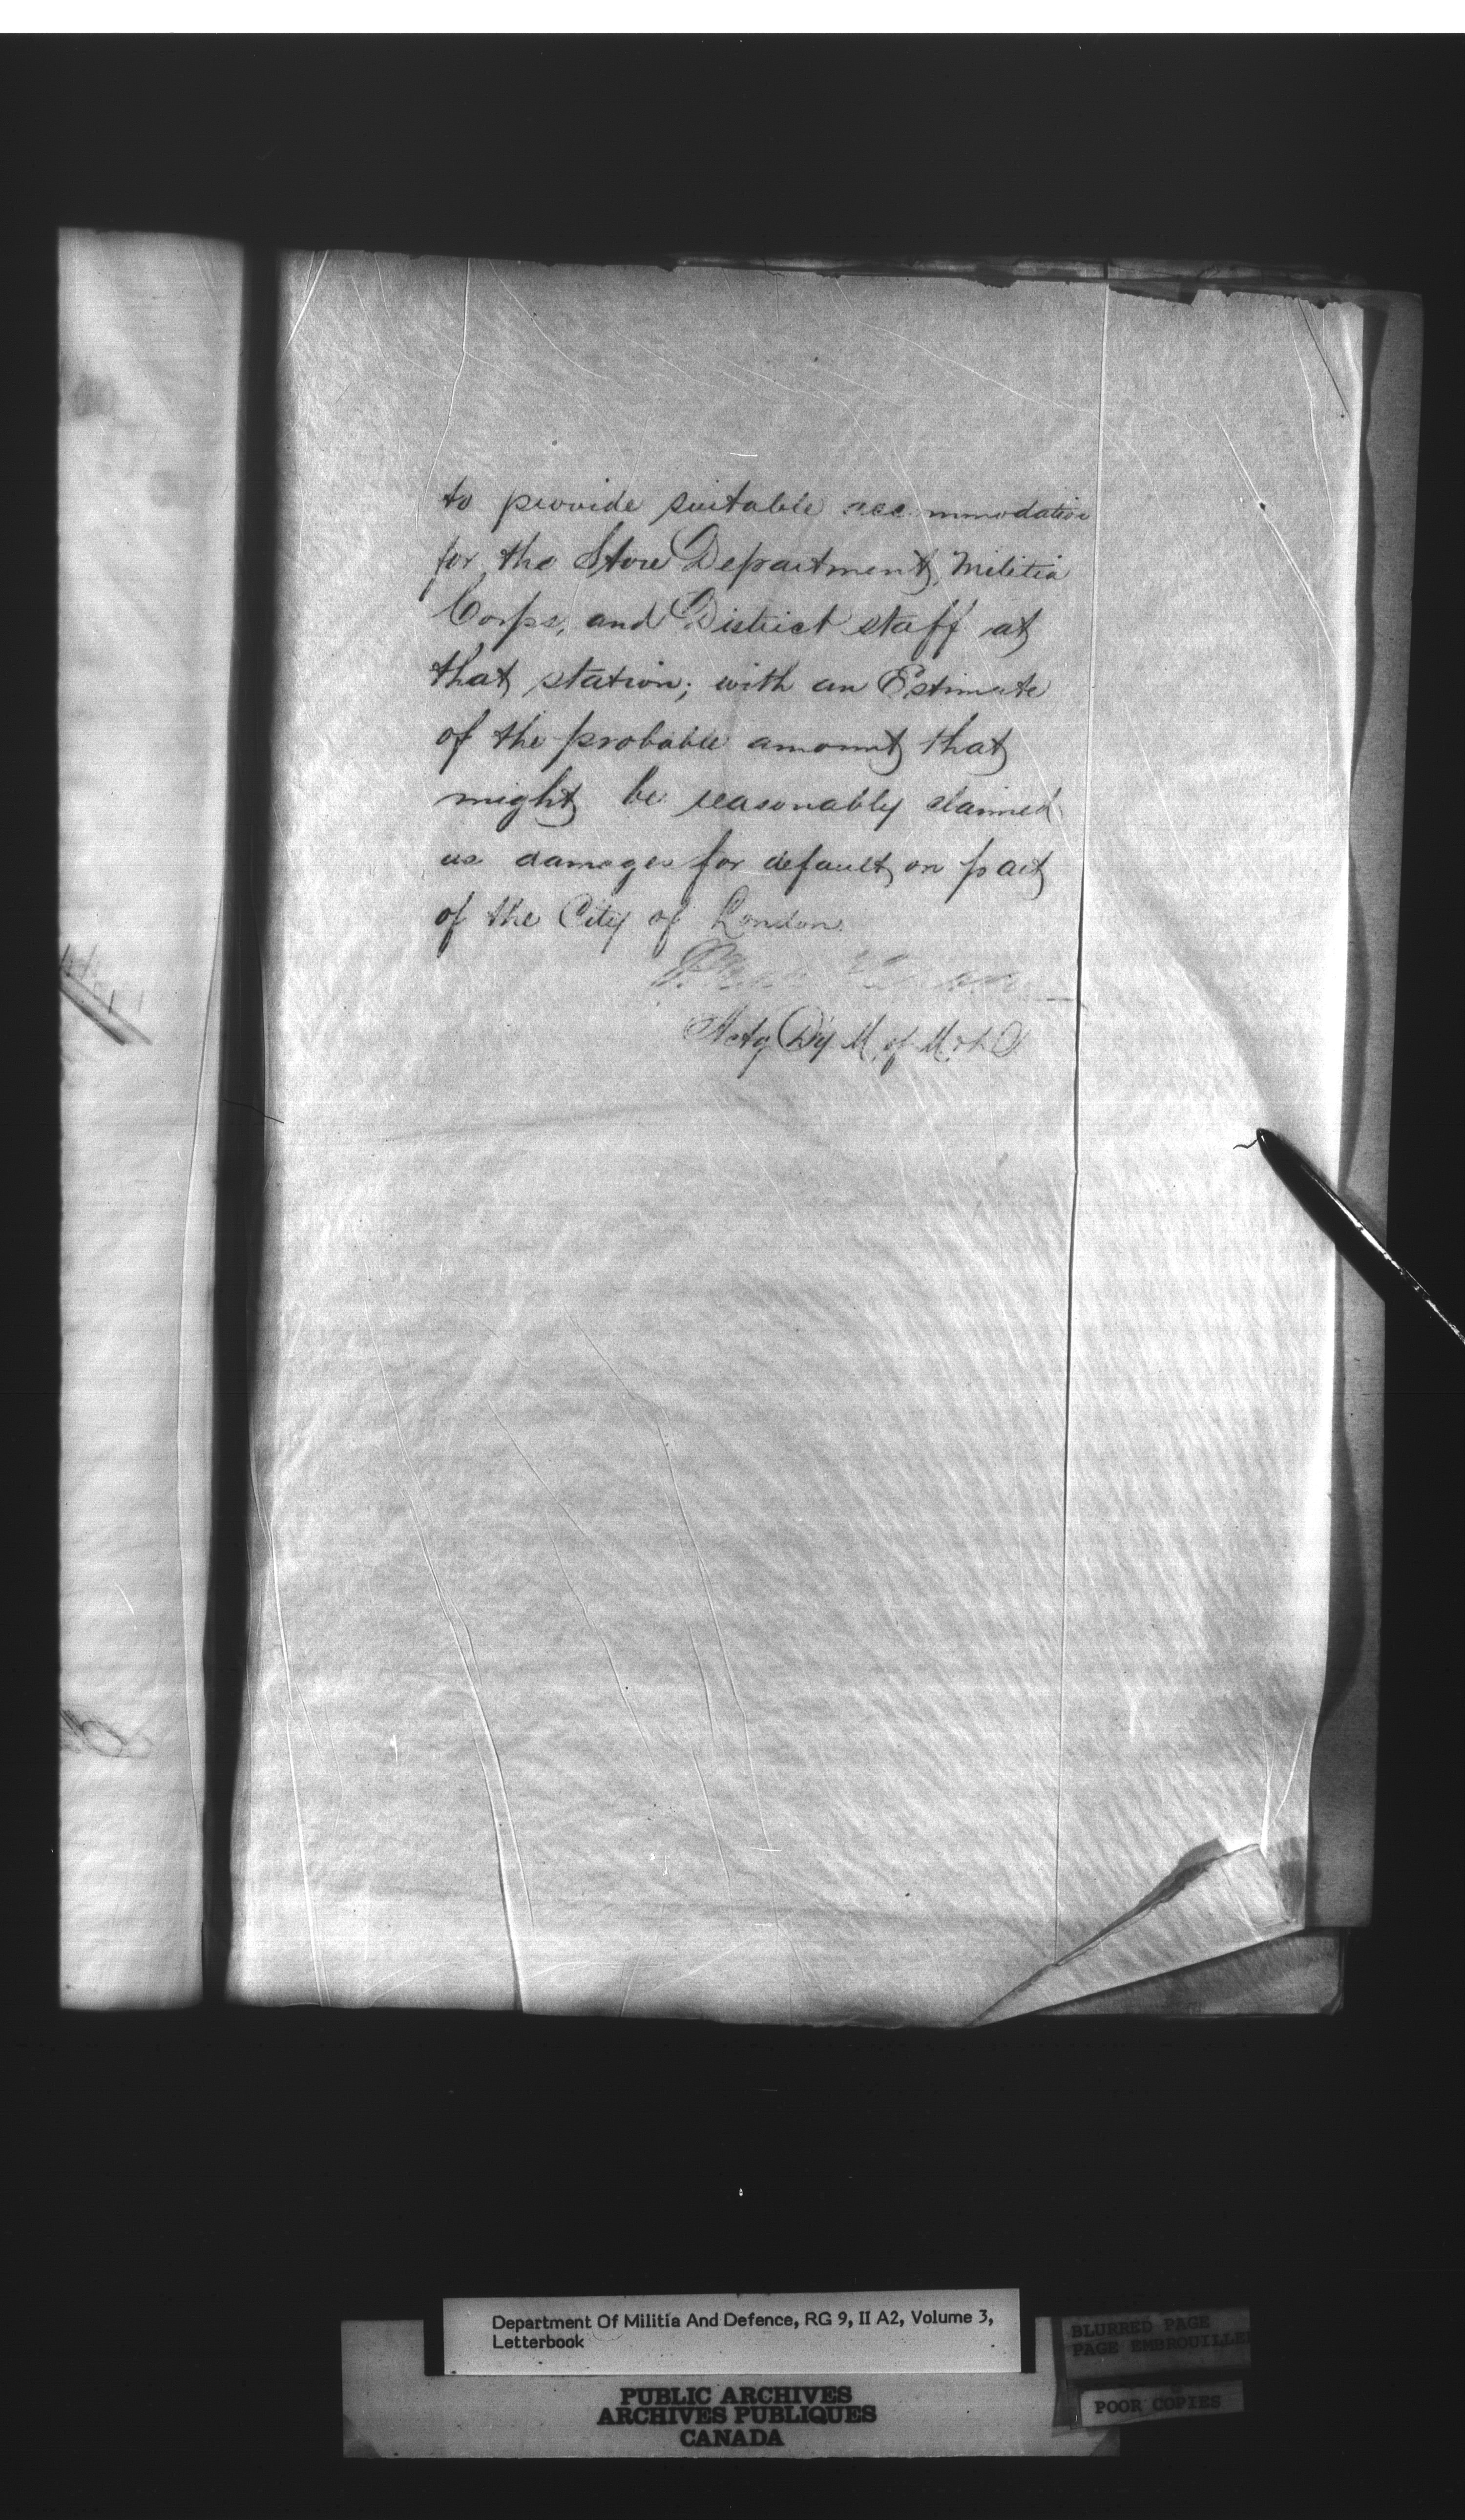 to provide suitable accommodation
for the Store Department, Militia
Corps, and District staff at
that station; with an Estimate
of the probable amount that
might be reasonably claimed
as damages for default on part
of the City of London.
Actg Dy M. of M. & D
Department Of Militia And Defence, RG 9, II A2, Volume 3,
Letterbook
PUBLIC ARCHIVES
ARCHIVES PUBLIQUES
CANADA
BLURRED PAGE
PAGE EMBROUILLEE
POOR COPIES